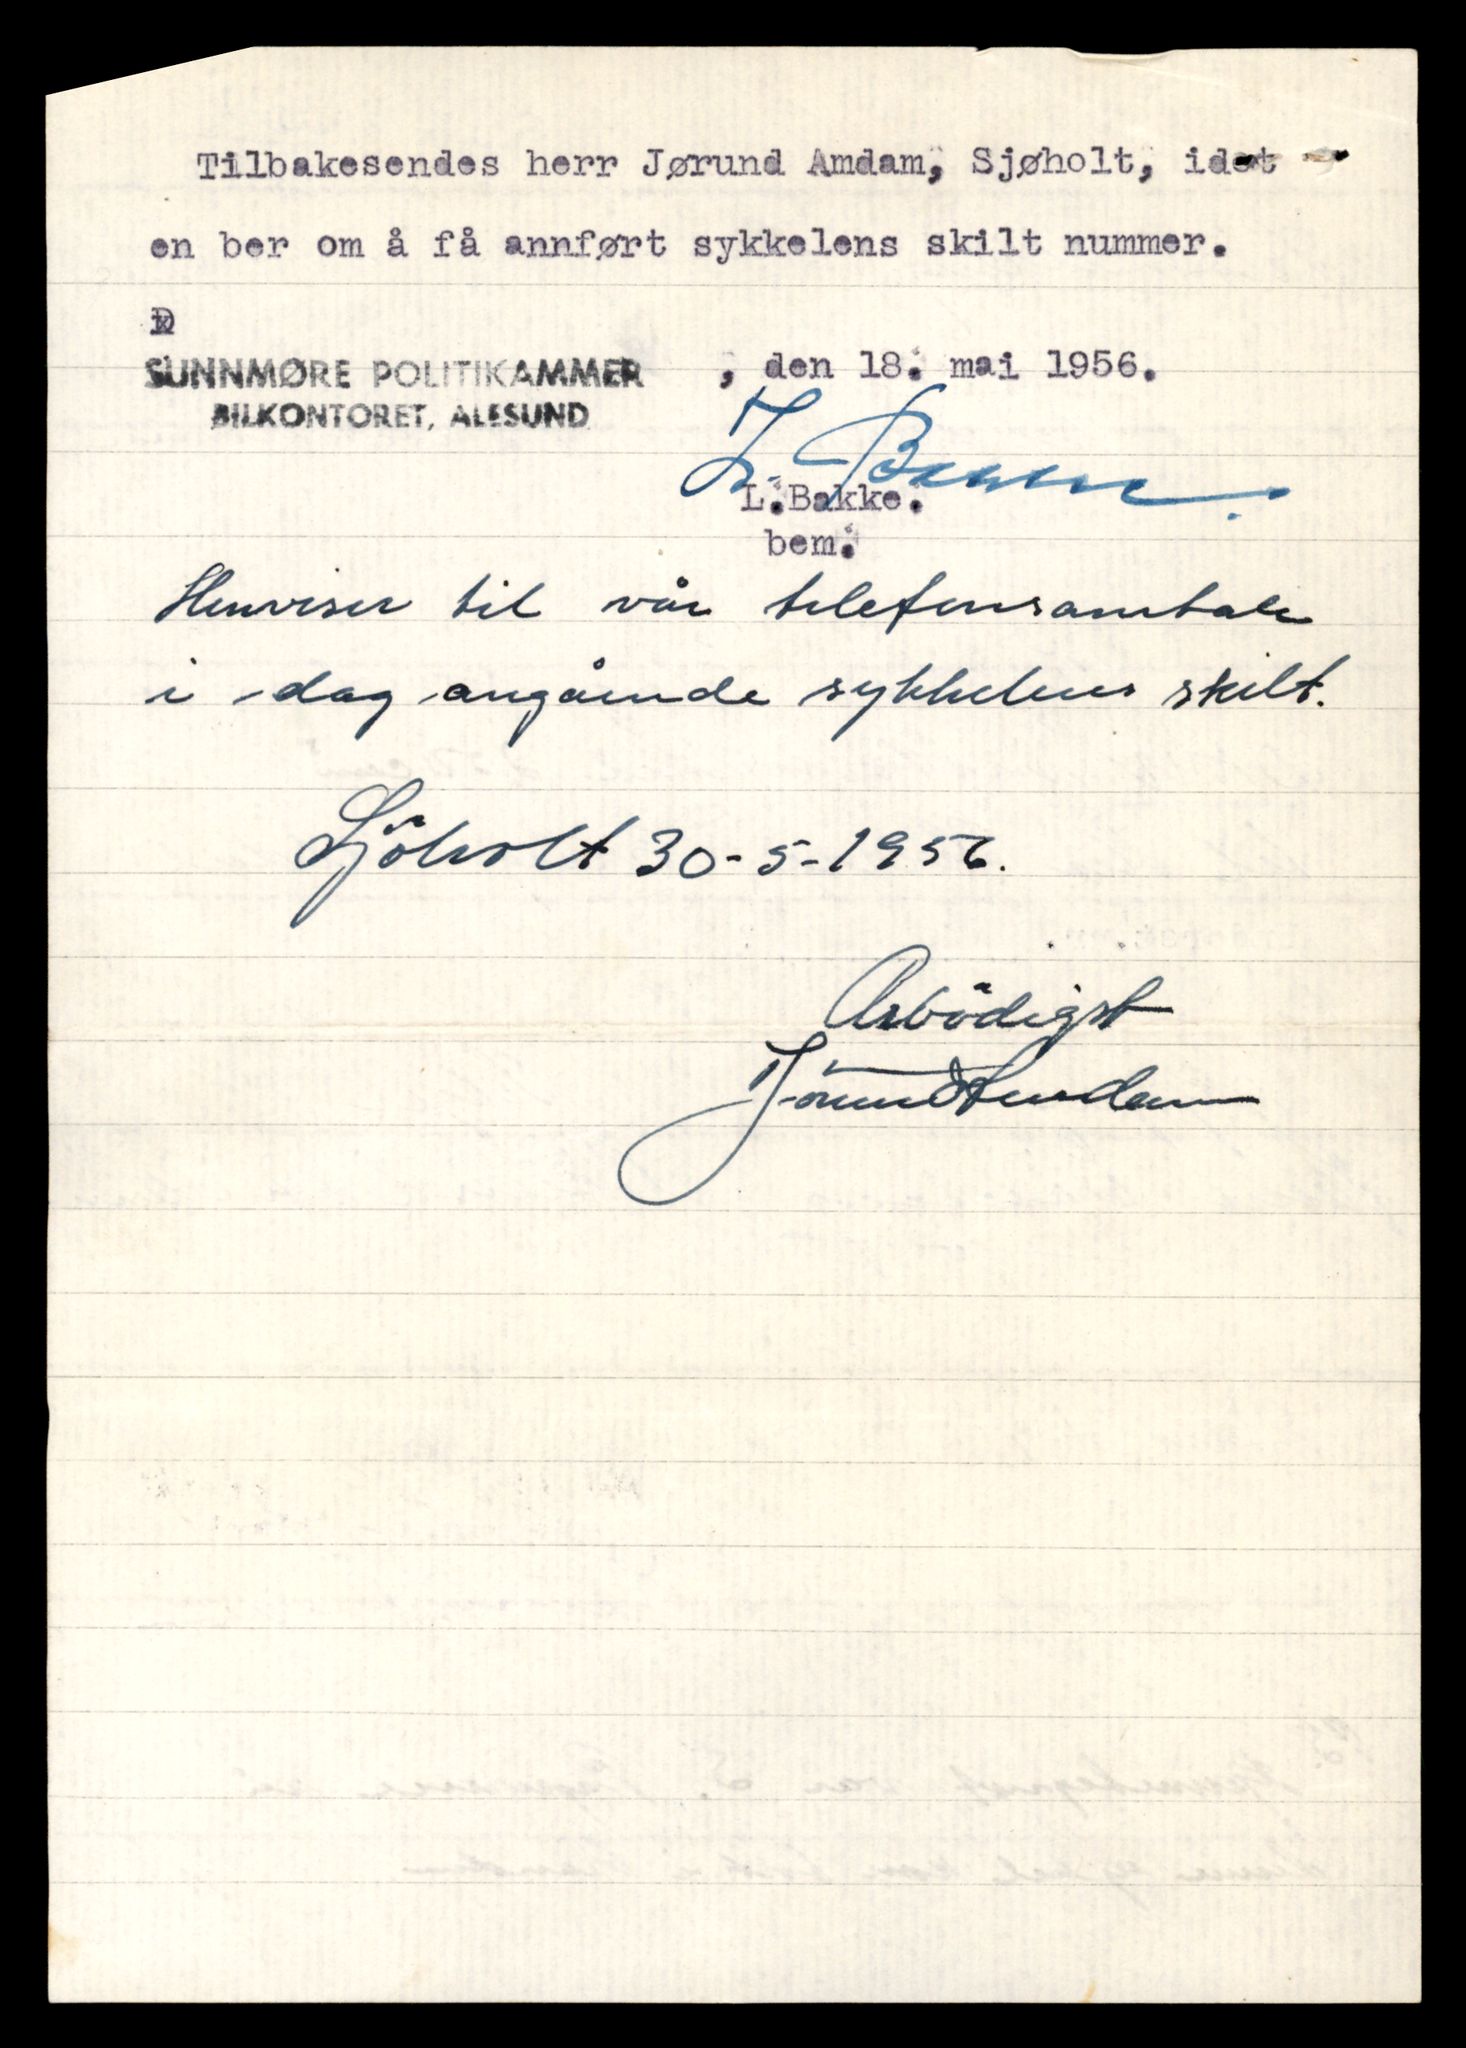 Tilbakesendes herr Jørund Amdam, Sjøholt, idet
en ber om å få annført sykkelens skilt nummer.
SUNNMØRE POLITIKAMMER , den 18. mai 1956.
BILKONTORET, ÅLESUND
L. Bakke.
L.Bakke.
bem.
Henviser til vår telefonsamtale
i dag angående sykkelens skilt.
Sjöholt 30-5-1956.
Arbödigst
Jörund Amdam